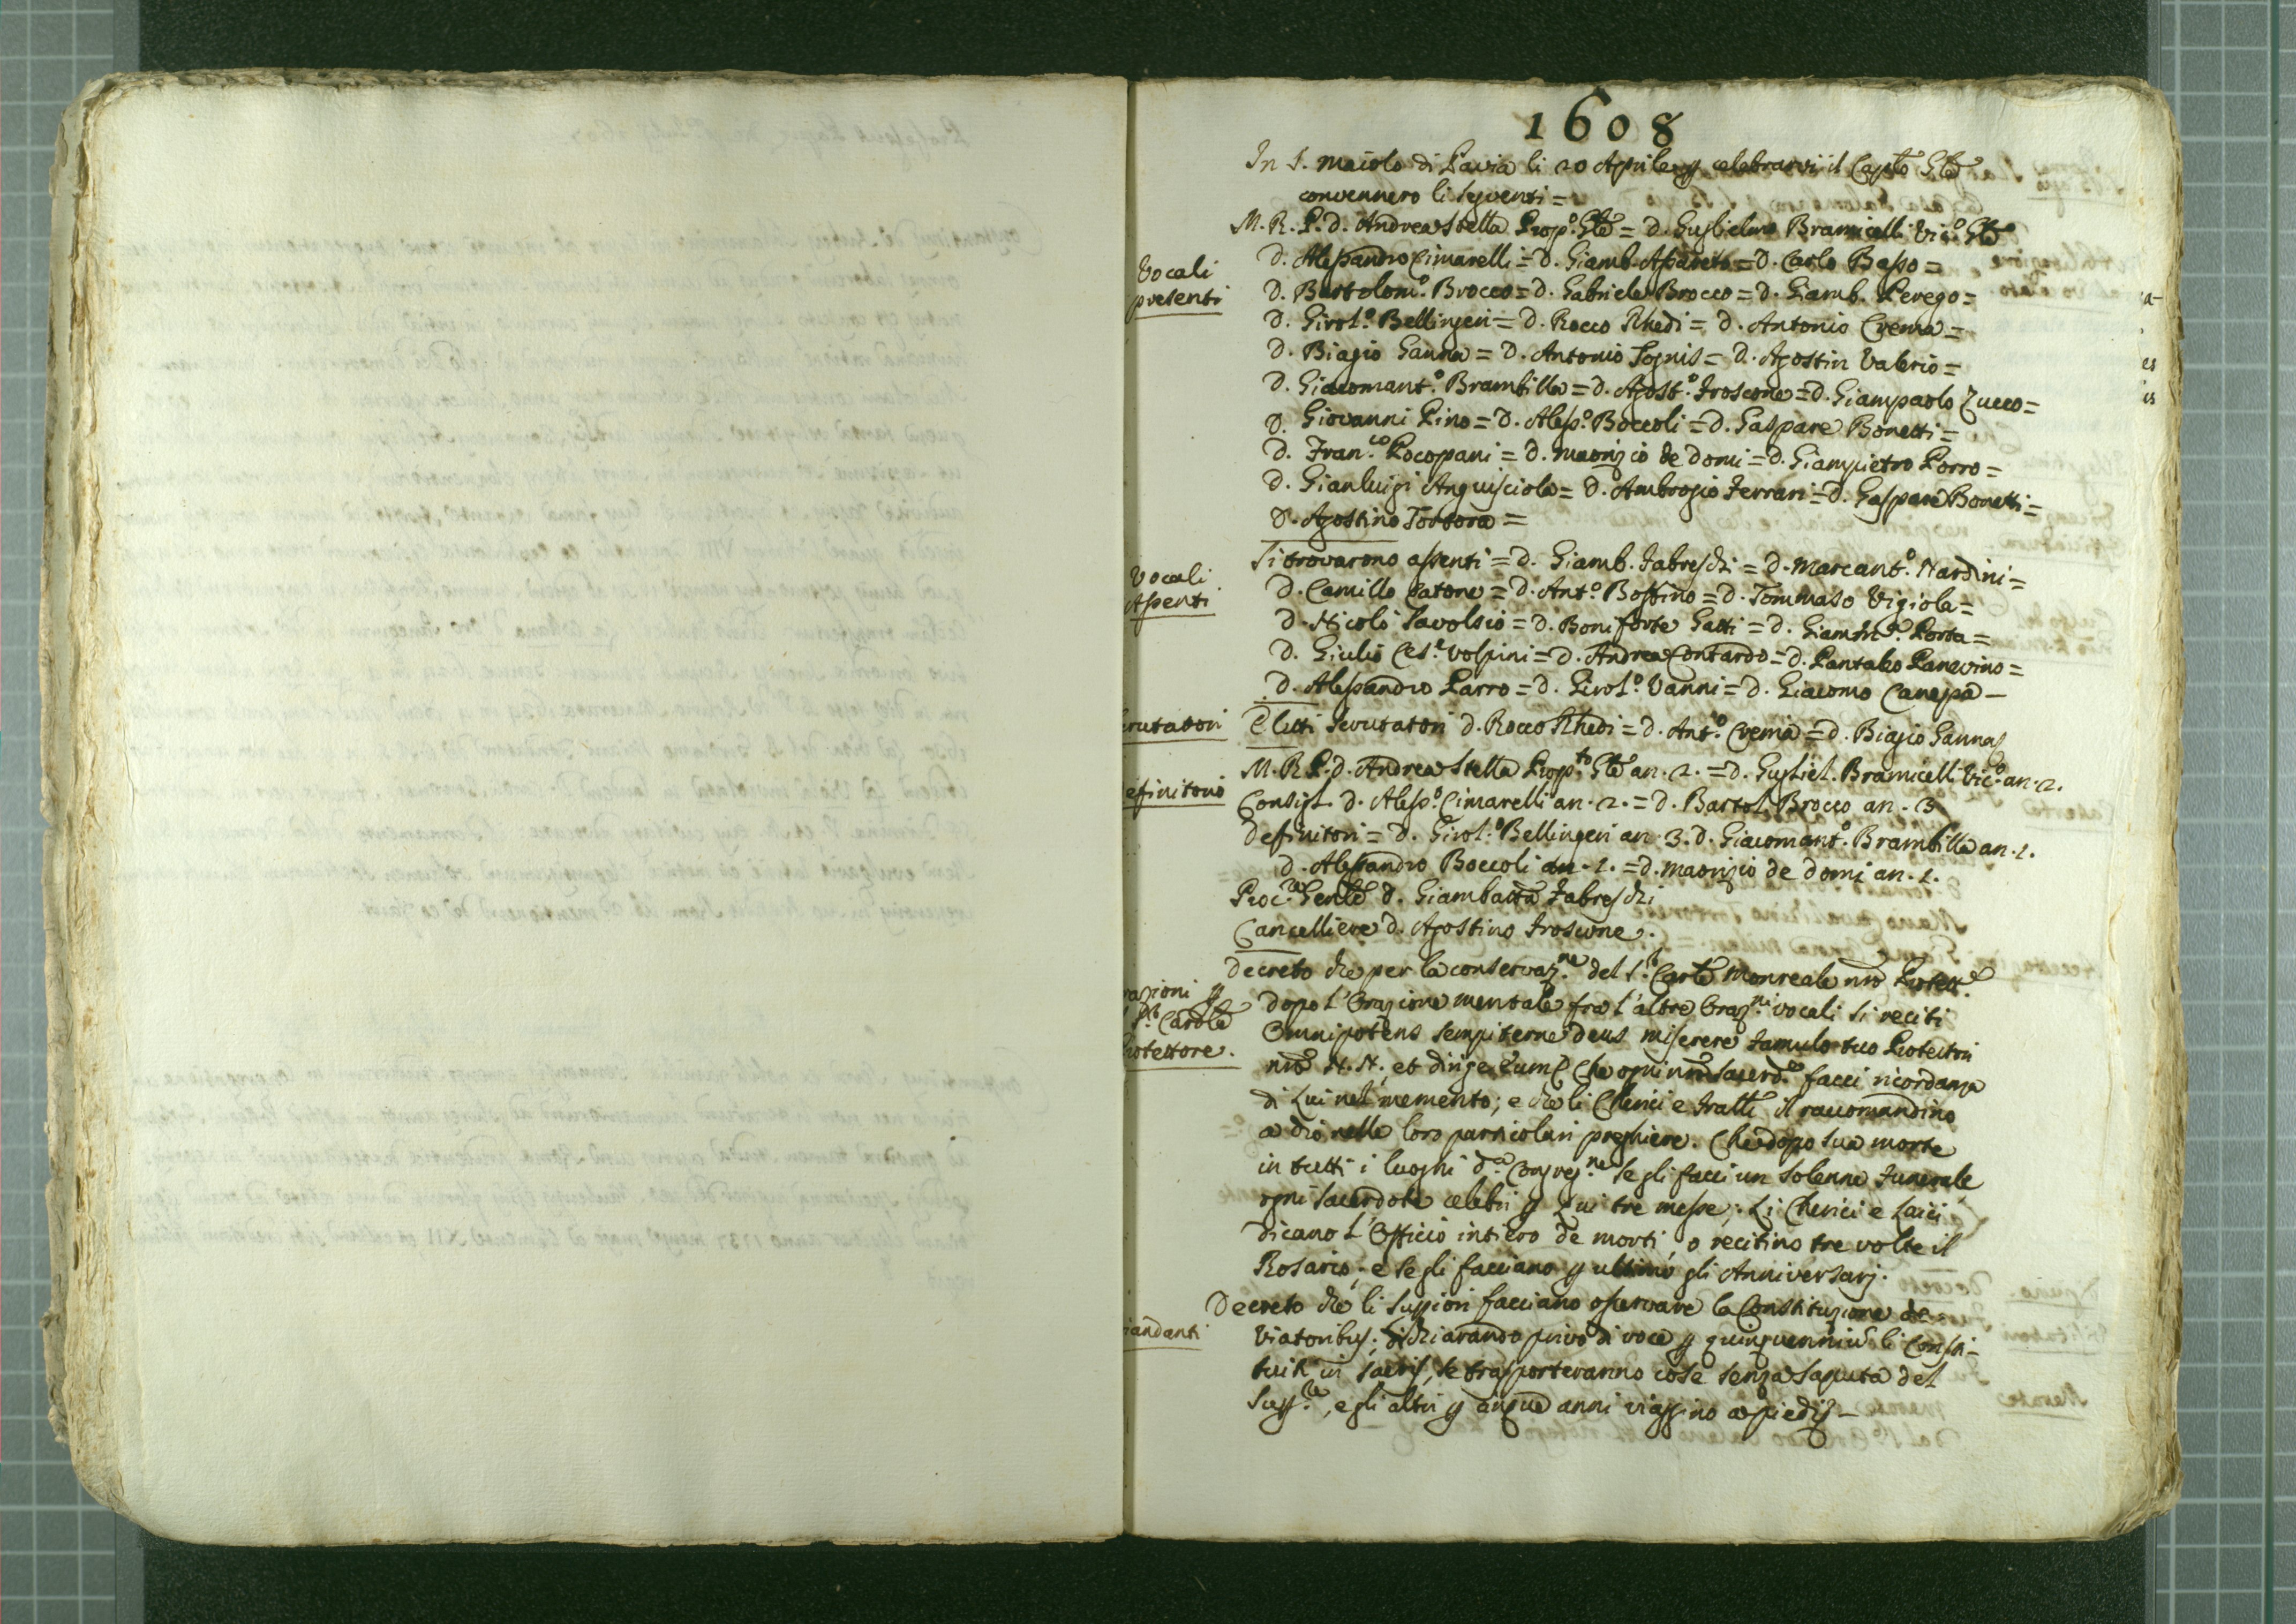 1608
In S. Maiolo di Pavia li 20 Aprile p celebrarvi il Caplo Gle
convennero li seguenti =
M. R. P. D. Andrea Stella Prop.o Gle = D. Guglielmo Bramicelli Vic.o Gle
Vocali
presenti
D. Alessandro Cimarelli = D. Giamb. Assereto = D. Carlo Basso =
D. Bartolom.o Brocco = D. Gabriele Brocco = D. Giamb. Perego =
D. Girol.o Bellingeri = D. Rocco Rhedi = D. Antonio Crema =
D. Biagio Ganna = D. Antonio Tognis = D. Agostin Valerio =
D. Giacomant.o Brambilla = D. Agost.o Froscone = D. Giampaolo Zucco =
D. Giovanni Pino = D. Aless.o Boccoli = D. Gaspare Bonetti =
D. Fran.co Pocopani = D. Maorizio de Domi = D. Giampietro Porro =
D. Gianluigi Anguisciola = D. Ambrogio Ferrari = D. Gaspare Bonetti =
D. Agostino Tortora =
Vocali
Assenti
Si trovarono assenti = D. Giamb. Fabreschi = D. Marcant.o Nardini =
D. Camillo Catone = D. Ant.o Bossino = D. Tommaso Vigiola =
D. Nicolò Savolsio = D. Boniforte Gatti = D. Porta =
D. Giulio Ces.e Volpini = D. Andrea Contardo = D. Pantaleo Panevino =
D. Alessandro Parro = D. Girol.o Vanni = D. Giacomo Canepa -
crutatori
Eletti scrutatori D. Rocco Rhedi = D. Ant.o Crema = D. Biagio Ganna
efinitorio
M. R. P. D. Andrea Stella Prop.to Gle an. 2. = D. Gugliel. Bramicelli Vic.o an. 2.
Consigl. D. Aless.o Cimarelli an. 2. = D. Bartol. Brocco an. 3
Definitori = D. Girol.o Bellingeri an. 3. D. Giacomant.o Brambilla an. 1.
D. Alessandro Boccoli an. 1. = D. Maorizio de Domi an. 1.
Proc.re Genle D. Giambatta Fabreschi
Cancelliere D. Agostino Froscone.
razioni p
Cardle
rotettore.
Decreto che per la conservaz.ne del S.r Cardle Monreale nro Protett.e
dopo l'Orazione mentale fra l'altre Oraz.ni vocali si reciti
Omnipotens sempiterne Deus miserere famulo tuo Protectori
nro N. N. et dirige eum Che ogni nro sacerd.e facci ricordanza
di Lui nel memento; e che li Cherici e Fratelli il raccomandino
a Dio nelle loro particolari preghiere. Che dopo sua morte
in tutti i luoghi d.a Congreg.ne se gli facci un solenne Funerale
ogni sacerdote celebri p Lui tre messe; Li Cherici e Laici
dicano l'Officio intiero de morti, o recitino tre volte il
Rosario; e se gli facciano p ultimo gli Anniversarj.
iandanti
Decreto che li Suppiori facciano osservare la Constituzione de
Viatoribus; dichiarando privo di voce p quinquennium li Consti-
tuiti in sacris, se trasporteranno cose senza saputa del
Supp.re, e gli altri p cinque anni viaggino a piedi -